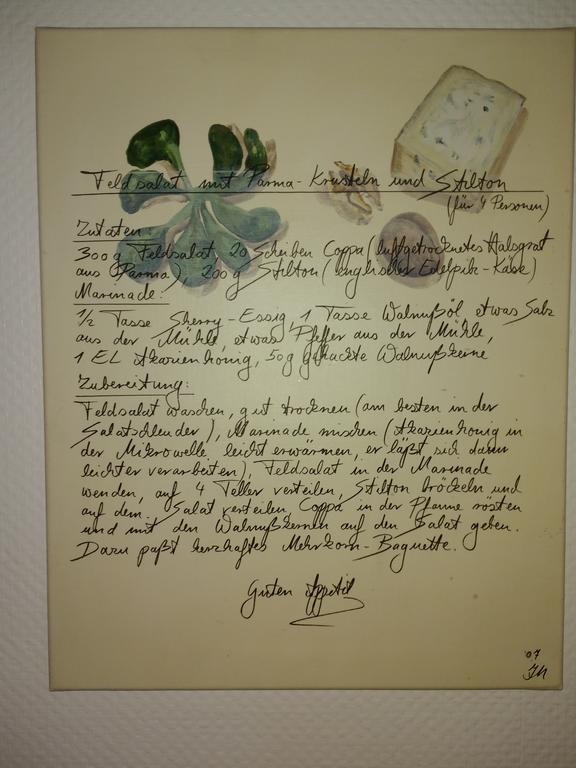 Feldsalat mit Parma-Krusteln und Stilton
(für 4 Personen)
Zutaten:
300g Feldsalat 20 Scheiben Coppa (luftgetrocknetes Halsgrat
aus Parma), 200g Stilton (englischer Edelpilz-Käse)
Marinade:
1/2 Tasse Sherry-Essig, 1 Tasse Walnußöl etwas Salz
aus der Mühle, etwas Pfeffer aus der Mühle,
1 EL Akazienhonig, 50g gehackte Walnußkerne
Zubereitung:
Feldsalat waschen, gut trocknen (am besten in der
Salatschleuder), Marinade mischen (Akazienhonig in
der Mikrowelle leicht erwärmen, er läßt sich dann
leichter verarbeiten), Feldsalat in der Marinade
wenden, auf 4 Teller verteilen, Stilton bröckeln und
auf dem Salat verteilen, Coppa in der Pfanne rösten
und mit den Walnußkernen auf den Salat geben.
Dazu paßt herzhaftes Mehrkorn-Baguette.
Guten Appetit
'07